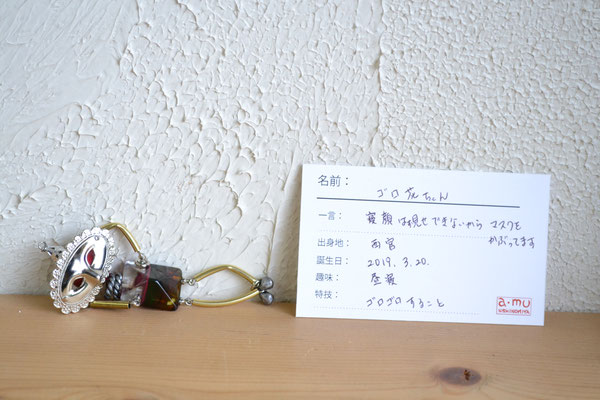 名前： ゴロ花ちゃん
一言： 寝顔は見せできないから マスクを
かぶってます
出身地： 西宮
誕生日： 2019. 3. 20.
趣味： 昼寝
特技： ゴロゴロすること
a・mu